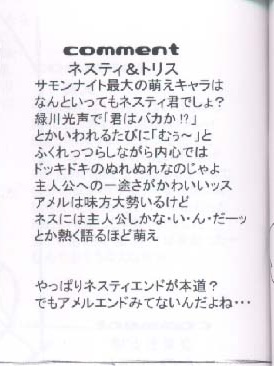 comment
ネスティ&トリス
サモンナイト最大の萌えキャラは
なんといってもネスティ君でしょ?
緑川光声で「君はバカか!?」
とかいわれるたびに「むぅ〜」と
ふくれっつらしながら内心では
ドッキドキのぬれぬれなのじゃよ
主人公への一途さがかわいいッス
アメルは味方大勢いるけど
ネスには主人公しかな・い・ん・だーッ
とか熱く語るほど萌え
やっぱりネスティエンドが本道?
でもアメルエンドみてないんだよね・・・